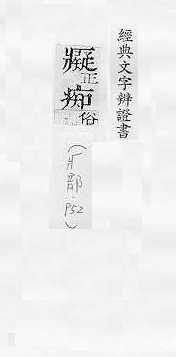 經典文字辨證書
癡正
痴俗
(疒部·P52)